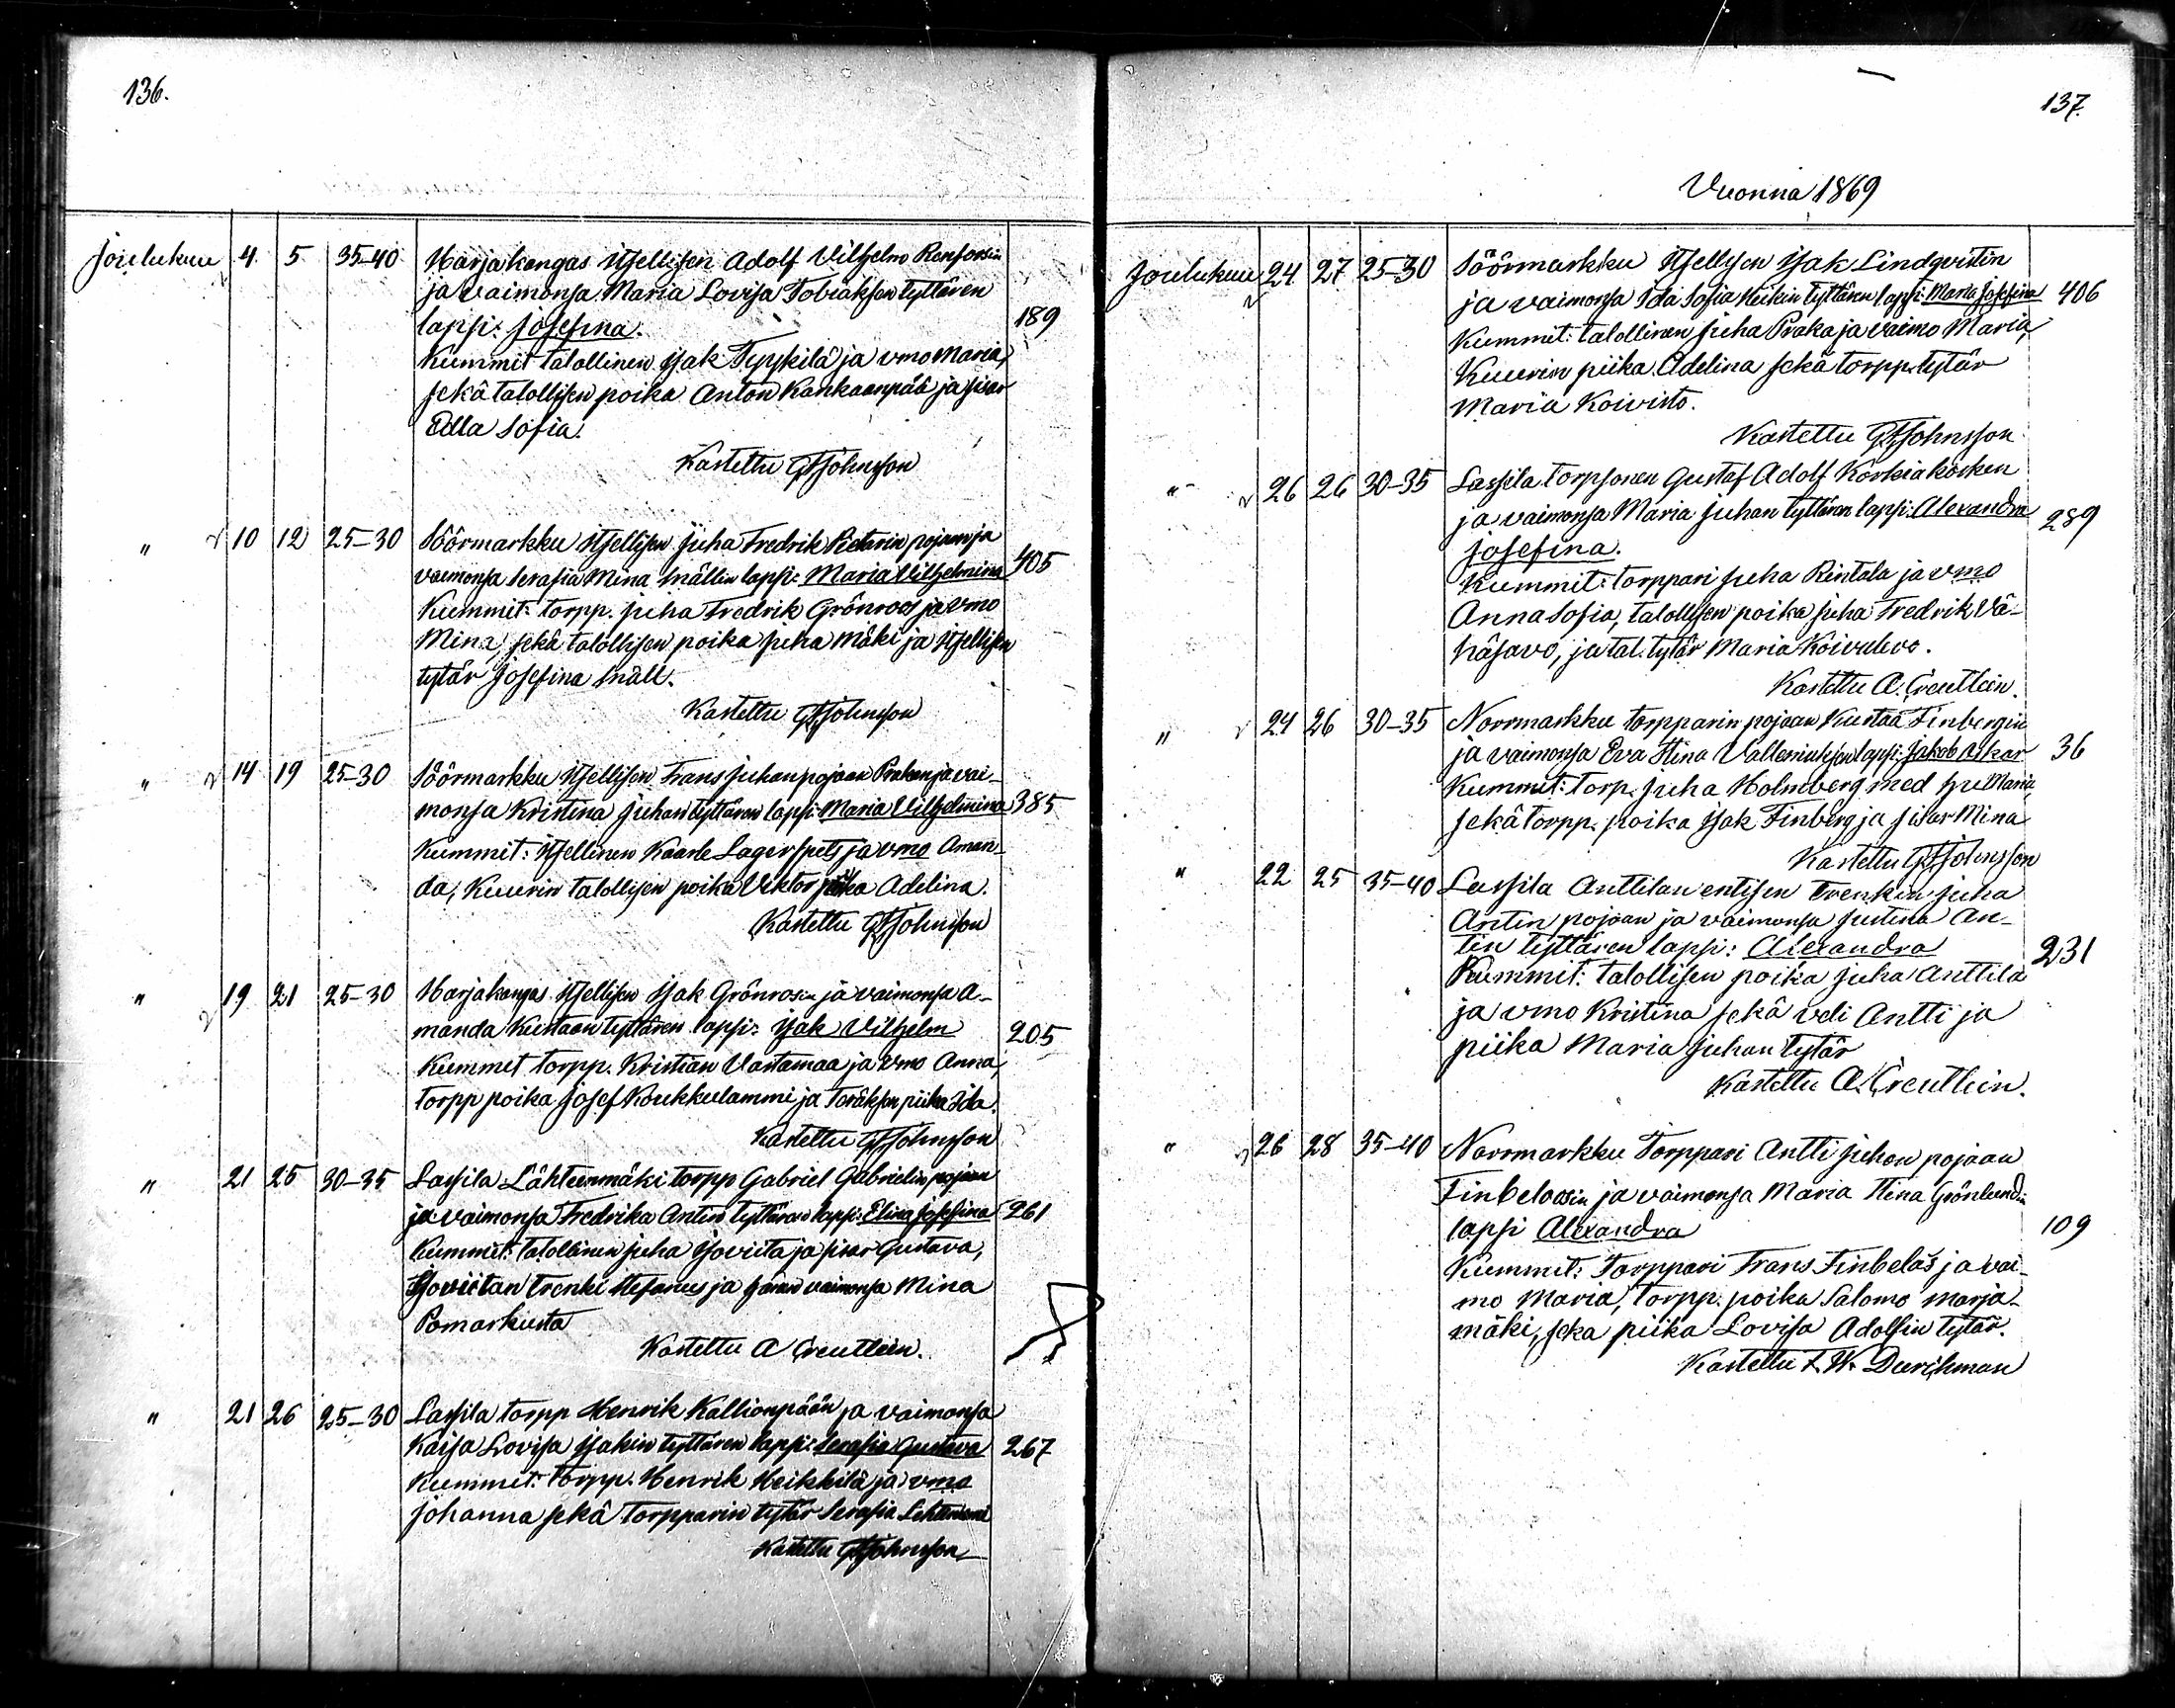 136.
Joulukuu 4 5 35-40 Harjakangas itsellisen Adolf Vilhelm Renforsin
ja vaimonsa Maria Lovisa Tobiaksen tyttären
lapsi: Josefina. 189
Kummit talollinen Isak Tyyskilä ja vmo Maria,
sekä talollisen poika Anton Kankaanpää ja sisar
Edla Sofia.
Kastettu GHJohnsson
" 10 12 25-30 Söörmarkku itsellisen Juha Fredrik Pietarin pojan ja
vaimonsa Serafia Mina Snällin lapsi: Maria Vilhelmina 405
Kummit: torpp. Juha Fredrik Grönroos ja vmo
Mina, sekä talollisen poika Juha Mäki ja itsellisen
tytär Josefina Snäll.
Kastettu GHJohnsson
" 14 19 25-30 Söörmarkku itsellisen Frans Juhan pojan Prakan ja vai-
monsa Kristina Juhan tyttären lapsi: Maria Vilhelmina 385
Kummit: itsellinen Kaarle Lagerspets ja vmo Aman-
da, Kuurin talollisen poika Viktor piika Adelina.
Kastettu GHJohnsson
" 19 21 25-30 Harjakangas itsellisen Isak Grönrosin ja vaimonsa A-
manda Kustaan tyttären lapsi: Isak Vilhelm 205
Kummit torpp. Kristian Vastamaa ja vmo Anna,
torpp poika Josef Koukkulammi ja piika Ida.
Kastettu GHJohnsson
" 21 25 30-35 Lassila Lähteenmäki torpp Gabriel Gabrielin pojan
ja vaimonsa Fredrika Antin tyttären lapsi: Elina Josefina 261
Kummit: talollinen Juha Isoviita ja sisar Gustava,
Isoviitan trenki Stefanus ja hänen vaimonsa Mina
Pomarkusta
Kastettu A Creutlein.
" 21 26 25-30 Lassila torpp Henrik Kallionpään ja vaimonsa
Kaisa Lovisa Isakin tyttären lapsi: Serafia Gustava 267
Kummit: torpp. Henrik Heikkilä ja vmo
Johanna sekä torpparin tytär Serafia
Kastettu GHJohnsson
137.
Vuonna 1869
Joulukuu 24 27 25-30 Söörmarkku itsellisen Isak Lindqvistin
ja vaimonsa Ida Sofia Heikin tyttären lapsi: Maria Josefina 406
Kummit: talollinen Juha Praka ja vaimo Maria,
Kuurin piika Adelina sekä torpp. tytär
Maria Koivisto.
Kastettu GHJohnsson
" 26 26 30-35 Lassila torpp Gustaf Adolf Körkiakosken
ja vaimonsa Maria Juhan tyttären lapsi: Alexandra 289
Josefina.
Kummit: torppari Juha Rintala ja vmo
Anna Sofia, talollisen poika Juha Fredrik Vä-
häsavo, ja tal. tytär Maria Koivulevo.
Kastettu A. Creutlein.
" 24 26 30-35 Norrmarkku torpparin pojan Kustaa Finbergin
ja vaimonsa Eva Stina lapsi: Jakob Oskar 36
Kummit: Torp. Juha Holmberg med hu Maria,
sekä torpp. poika Isak Finberg ja sisar Mina
Kastettu GHJohnsson
" 22 25 35-40 Lassila Anttilan entisen trenkin Juha
Antin pojan ja vaimonsa Justina An-
tin tyttären lapsi: Alexandra 231
Kummit: talollisen poika Juha Anttila
ja vmo Kristina sekä veli Antti ja
piika Maria Juhan tytär
Kastettu A. Creutlein.
" 26 28 35-40 Norrmarkku Torppari Antti Juhan pojan
Finbeloosin ja vaimonsa Maria Stina Grönlundin
lapsi Alexandra 109
Kummit: Torppari Frans Finbelos ja vai-
mo Maria, torpp. poika Salomo Marja-
mäki, sekä piika Lovisa Adolfin tytär.
Kastettu F. W. Durchman